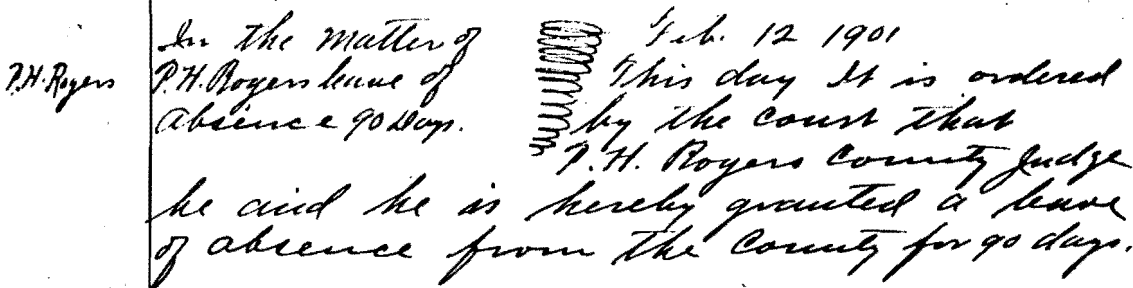 P.H. Rogers
In the Matter of
P.H. Rogers leave of
Absence 90 Days.
Feb. 12 1901
This day It is ordered
by the Court that
P. H. Rogers County Judge
be and he is hereby granted a leave
of absence from the County for 90 days.